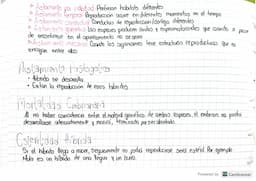 * Aislamiento por habitat Prefieren habitats diferentes
* Aislamiento temporal Reproducción ocurre en diferentes momentos en el tiempo
* Aislamiento conductual Conductas de reproducción/cortejo diferentes
las especies producen óvulos y espermatozoides que
en el apareamiento no se unen
* Aislamiento mecánico Cuando los organismos tiene estructuras reproductivas que no
encajan entre ellas
Aislamiento Postcigotico
• Hibrido se desarrolla
• Evitan la reproducción de esos hibridos
Mortalidad Embrionaria
Al no haber coincidencia entre el material genético de ambas especies, el embrion no podra
desarrollarse adecuadamente y morirá,
Esterilidad Hibrida
Si el hibrido llega a nacer, frecuentemente no podrá reproducirse será estéril. Por ejemplo
Mula es un hibrido de una yegua y un burro.
Powered by CS CamScanner